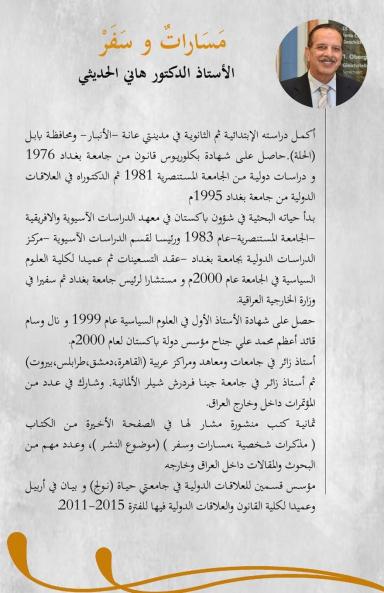 مَسَاراتٌ و سَفَرْ
الأستاذ الدكتور هاني الحديثي
أكمل دراسته الإبتدائية ثم الثانوية في مدينتي عانة -الأنبار- ومحافظة بابل
(الحلة). حاصل على شهادة بكلوريوس قانون من جامعة بغداد 1976
و دراسات دولية من الجامعة المستنصرية 1981 ثم الدكتوراه في العلاقات
الدولية من جامعة بغداد 1995م
بدأ حياته البحثية في شؤون باكستان في معهد الدراسات الآسيوية والافريقية
-الجامعة المستنصرية-عام 1983 ورئيسا لقسم الدراسات الآسيوية -مركز
الدراسات الدولية بجامعة بغداد -عقد التسعينات ثم عميدا لكلية العلوم
السياسية في الجامعة عام 2000م و مستشارا لرئيس جامعة بغداد ثم سفيرا في
وزارة الخارجية العراقية.
حصل على شهادة الأستاذ الأول في العلوم السياسية عام 1999 و نال وسام
قائد أعظم محمد علي جناح مؤسس دولة باكستان لعام 2000م.
أستاذ زائر في جامعات ومعاهد ومراكز عربية (القاهرة،دمشق،طرابلس،بيروت)
ثم أستاذ زائر في جامعة جينا فردرش شيلر الألمانية. وشارك في عدد من
المؤتمرات داخل وخارج العراق.
ثمانية كتب منشورة مشار لها في الصفحة الأخيرة من الكتاب
( مذكرات شخصية ،مسارات وسفر ) (موضوع النشر )، وعدد مهم من
البحوث والمقالات داخل العراق وخارجه.
مؤسس قسمين للعلاقات الدولية في جامعتي حياة (نولج) و بيان في أربيل
وعميدا لكلية القانون والعلاقات الدولية فيها للفترة 2015-2011.